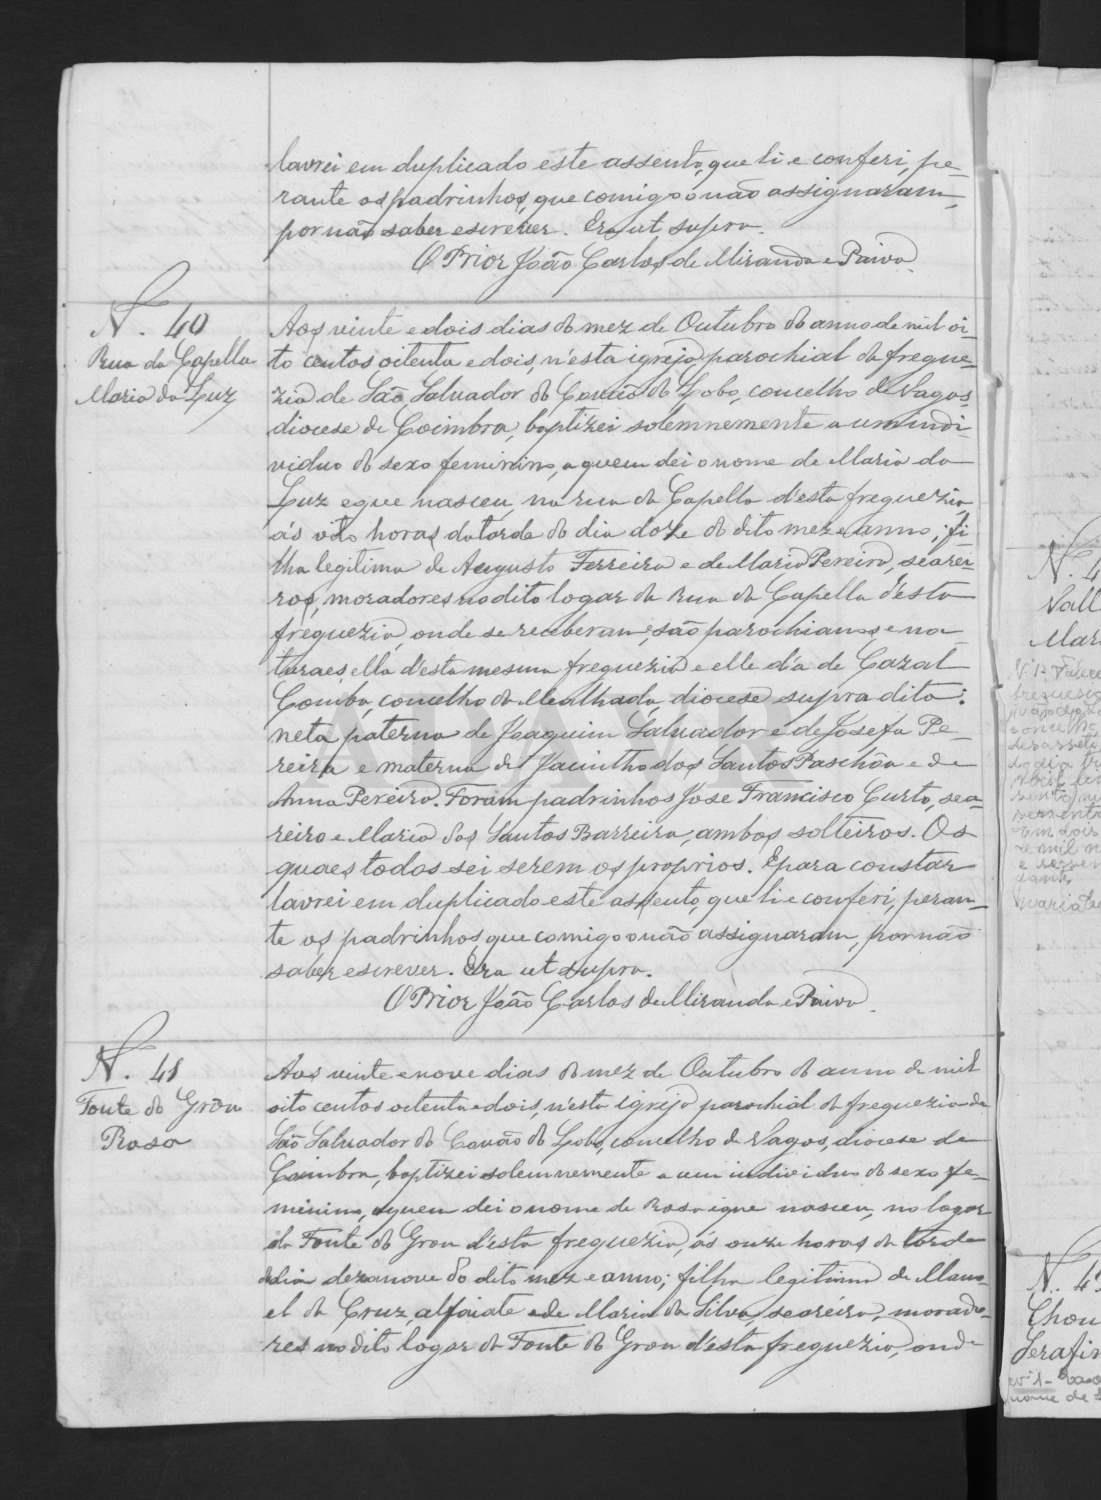 lavrei em duplicado este assento, que li e conferi, pe-
rante os padrinhos, que comigo não assignaram,
por não saber escrever. Era ut supra.
O Prior João Carlos de Miranda e Paiva.
N. 40
Rua da Capella
Maria da Luz
Aos vinte e dois dias do mez de Outubro do anno de mil oi-
to centos oitenta e dois, n'esta igreja parochial da fregue-
zia de São Salvador do Covão do Lobo, concelho de Vagos,
diocese de Coimbra, baptizei solemnemente a um indi-
viduo do sexo feminino, a quem dei o nome de Maria da
Luz e que nasceu na rua da Capella d'esta freguezia,
ás oito horas da tarde do dia doze do dito mez e anno; fi-
lha legitima de Augusto Ferreira e de Maria Pereira, searei-
ros, moradores no dito logar da Rua da Capella d'esta
freguezia, onde se receberam, são parochianos e na-
turaes, ella d'esta mesma freguezia e elle d'a de Cazal
Comba, concelho da Mealhada, diocese supra dita:
neta paterna de Joaquim Salvador e de Josefa Pe-
reira e materna de Jacintho dos Santos Paschôa e de
Anna Pereira. Foram padrinhos José Francisco Curto, sea-
reiro e Maria dos Santos Barreira, ambos solteiros. Os
quaes todos sei serem os proprios. E para constar
lavrei em duplicado este assento, que li e conferi, peran-
te os padrinhos que comigo o não assignaram, por não
saber escrever. Era ut supra.
O Prior João Carlos de Miranda e Paiva.
N. 41
Fonte do Grou
Rosa
Aos vinte e nove dias do mez de Outubro do anno de mil
oito centos oitenta e dois, n'esta igreja parochial da freguezia de
São Salvador do Covão do Lobo, concelho de Vagos, diocese de
Coimbra, baptizei solemnemente a um individuo do sexo fe-
minino, a quem dei o nome de Rosa e que nasceu, no logar
da Fonte do Grou d'esta freguezia, ás onze horas da tarde
do dia dezanove do dito mez e anno; filha legitima de Mano-
el da Cruz, alfaiate e de Maria da Silva, seareira, morado-
res no dito logar da Fonte do Grou d'esta freguezia, onde
ADAVR
N. 4
Vall
Mari
N. 4
Chou
Serafin
nome de